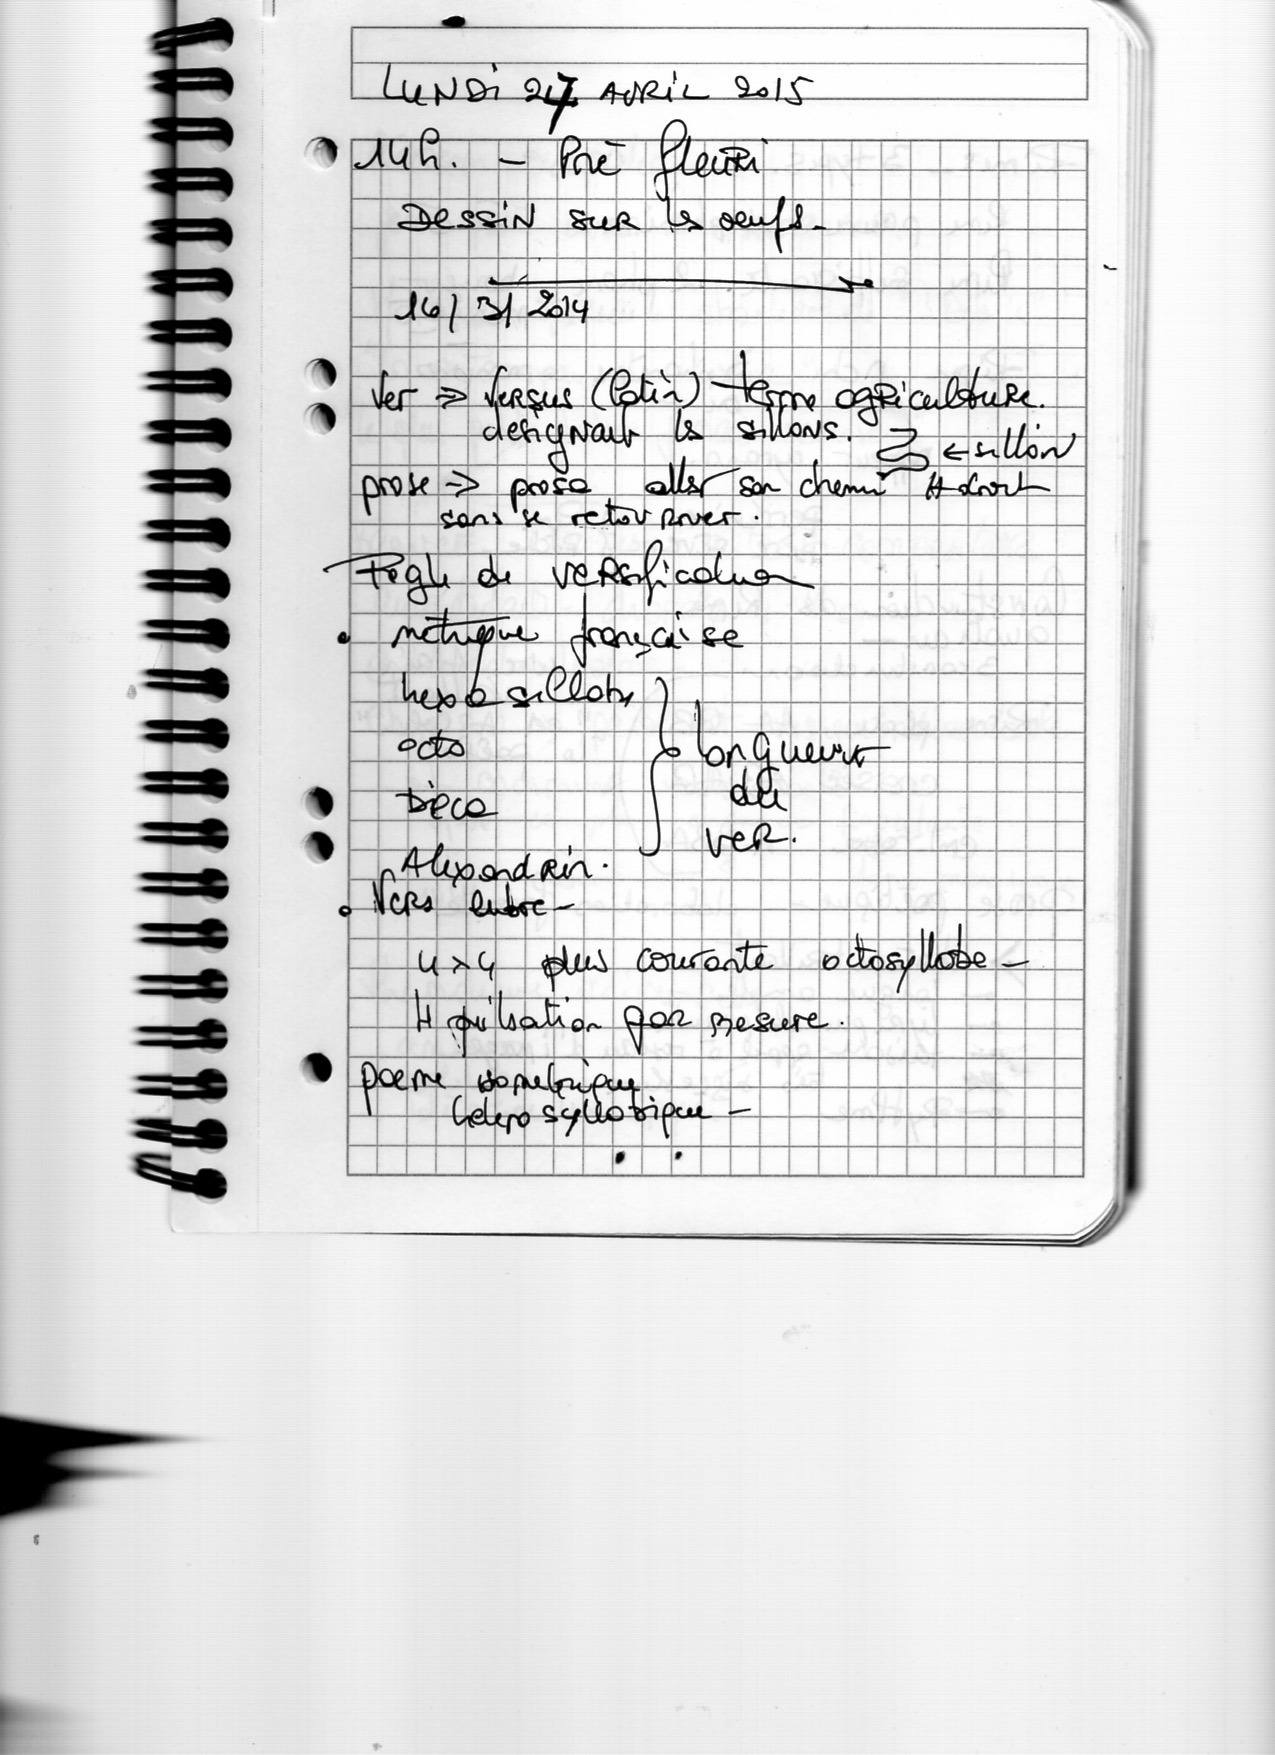 LUNDI 27 AVRIL 2015
14h. - Pré fleuri
DESSIN SUR les oeufs -
16/3/2014
Ver => VERSUS (latin) terme agriculture.
désignant les sillons.
← sillon
prose => prosa aller son chemin tt droit
sans se retourner.
Règle de versification
• métrique française
hexasillabe
octo
Déca
longueur
du
VER.
Alexandrin.
• Vers libre -
4 x 4 plus courante octosyllabe -
4 pulsation par mesure.
poeme isometrique
heterosyllabique -